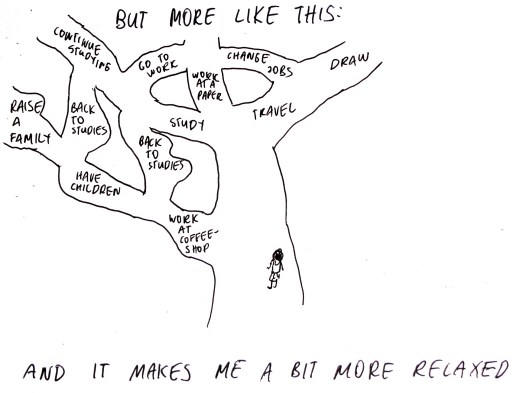 BUT MORE LIKE THIS:
CONTINUE
STUDYING
GO TO
WORK
WORK
AT A
PAPER
CHANGE
JOBS
DRAW
TRAVEL
RAISE
A
FAMILY
BACK
TO
STUDIES
STUDY
BACK
TO
STUDIES
HAVE
CHILDREN
WORK
AT
COFFEE-
SHOP
AND IT MAKES ME A BIT MORE RELAXED